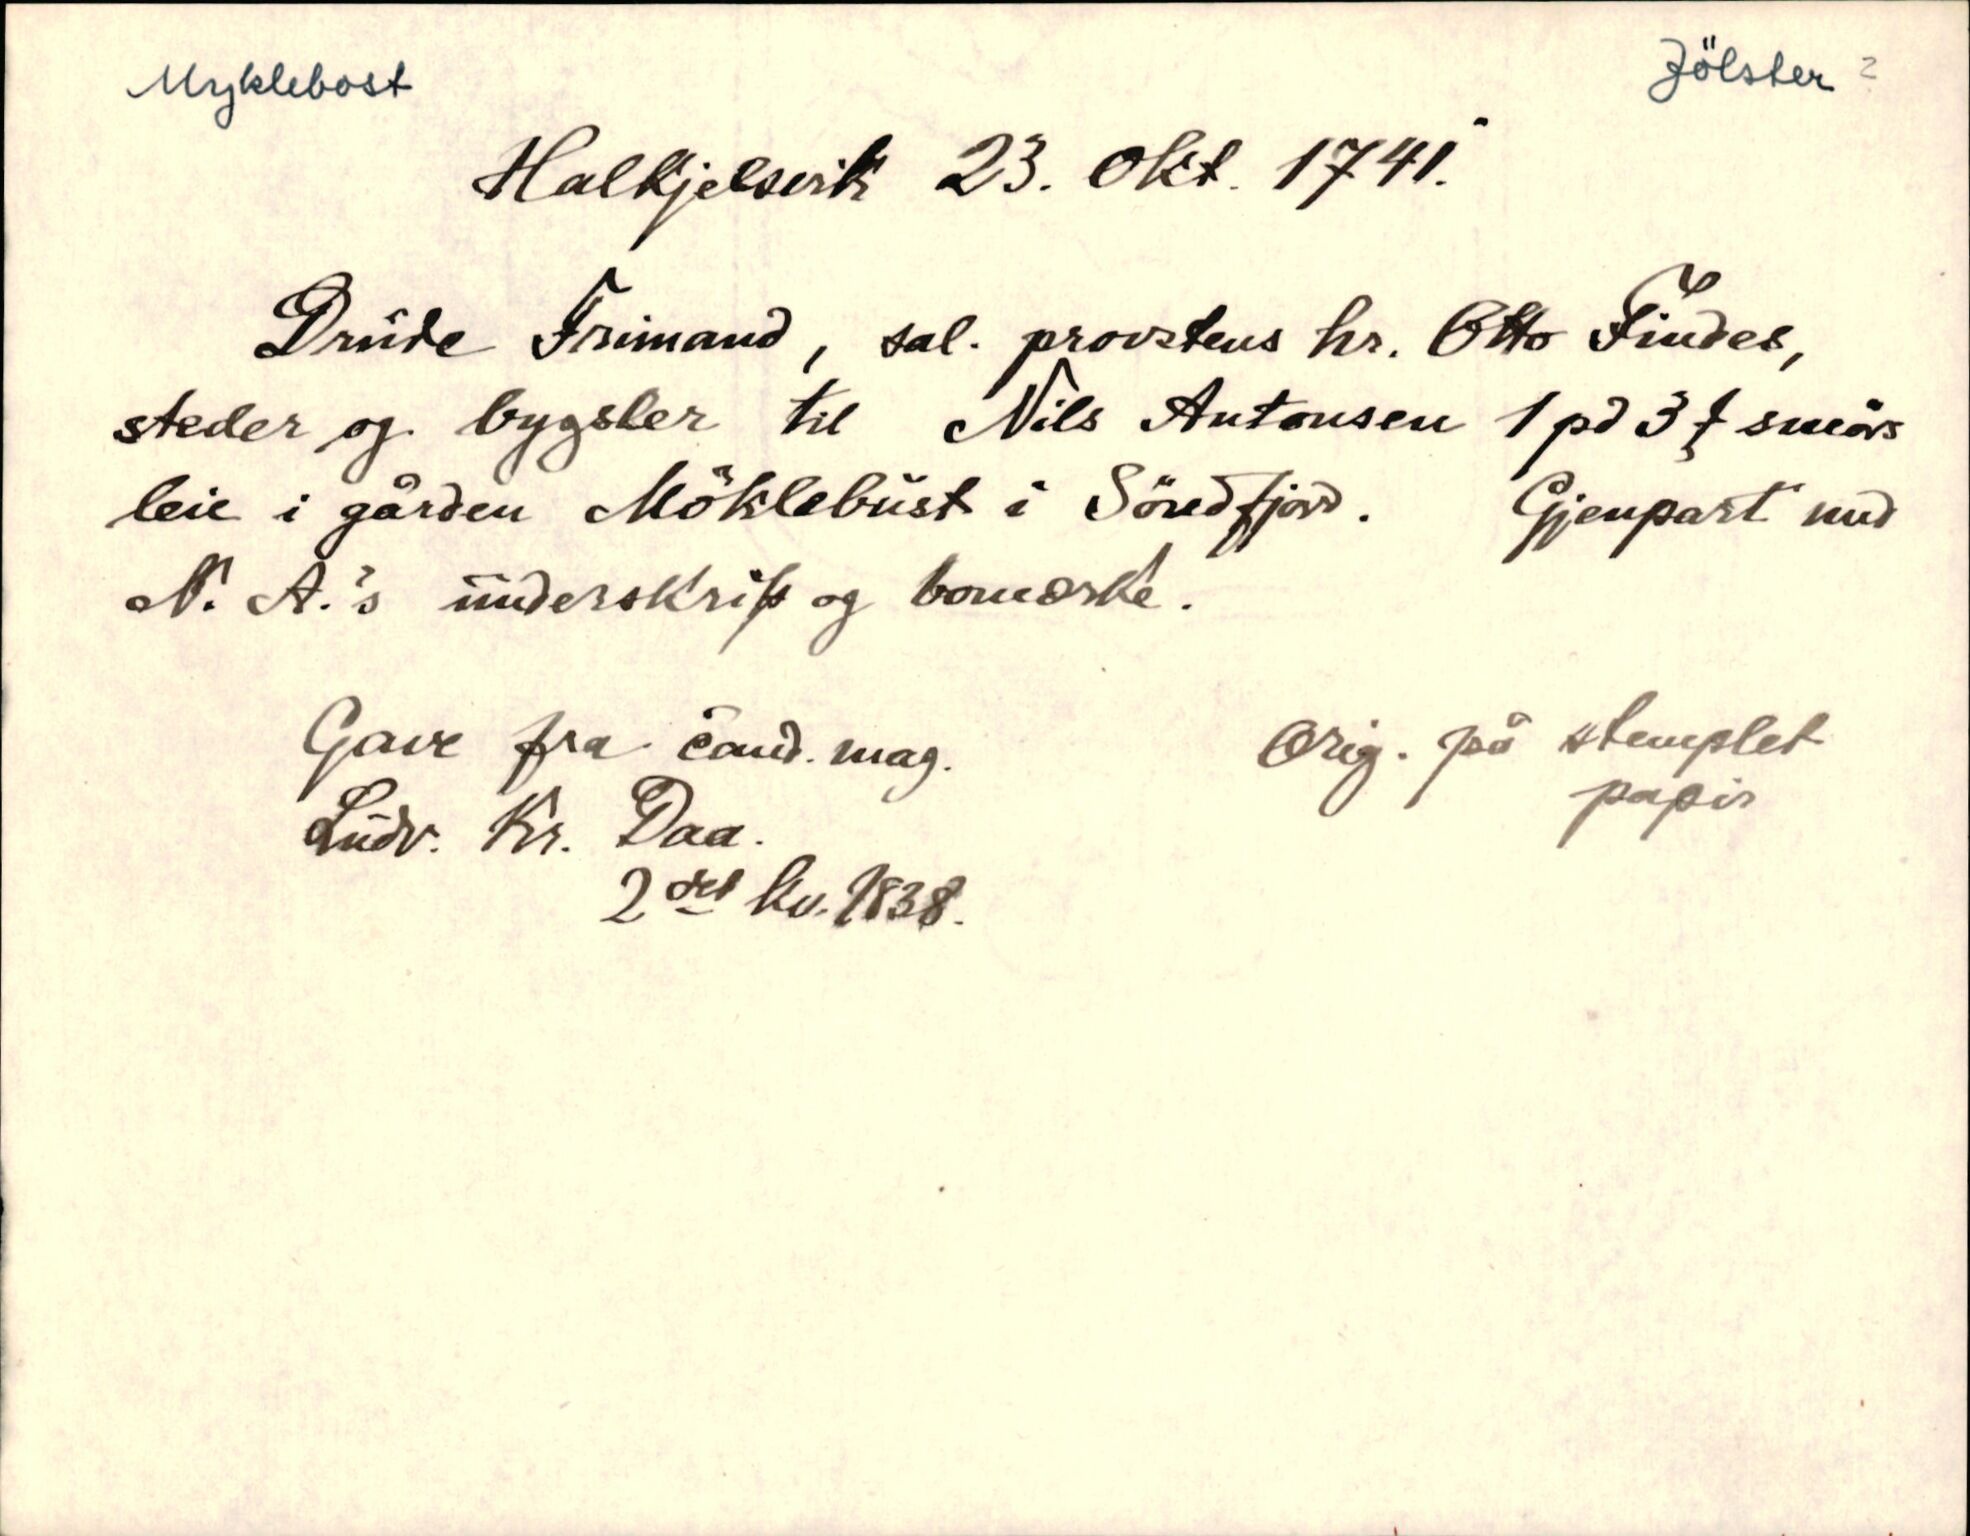 Myklebost Jölster ?
Halkjelsvik 23. Okt. 1741.
Drude Frimand, sal. provstens hr. Otto Findes,
steder og bygsler til Nils Antonsen 1 pd 3 ℔ smörs
leie i gården Möklebust i Söndfjord. Gjenpart med
N. A.'s underskrift og bomærke.
Gave fra cand. mag. Orig. på stemplet
Ludv. Kr. Daa. papir
2det kv. 1838.